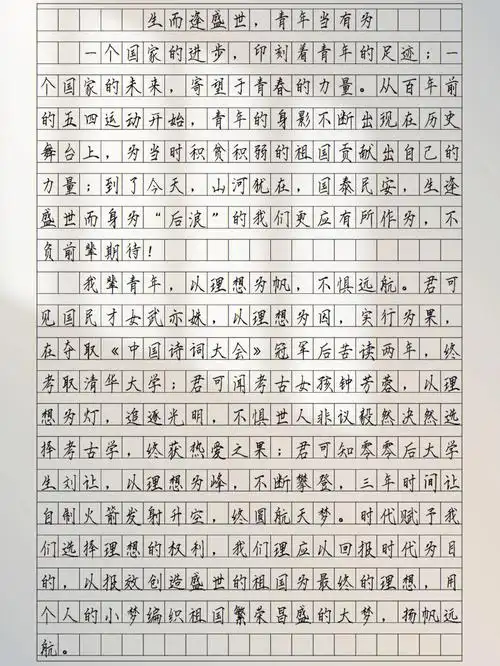 生而逢盛世，青年当有为
一个国家的进步，印刻着青年的足迹；一
个国家的未来，寄望于青春的力量。从百年前
的五四运动开始，青年的身影不断出现在历史
舞台上，为当时积贫积弱的祖国贡献出自己的
力量；到了今天，山河犹在，国泰民安，生逢
盛世而身为“后浪”的我们更应有所作为，不
负前辈期待！
我辈青年，以理想为帆，不惧远航。君可
见国民才女武亦姝，以理想为因，实行为果，
在夺取《中国诗词大会》冠军后苦读两年，终
考取清华大学；君可闻考古女孩钟芳蓉，以理
想为灯，追逐光明，不惧世人非议毅然决然选
择考古学，终获热爱之果；君可知零零后大学
生刘让，以理想为峰，不断攀登，三年时间让
自制火箭发射升空，终圆航天梦。时代赋予我
们选择理想的权利，我们理应以回报时代为目
的，以报效创造盛世的祖国为最终的理想，用
个人的小梦编织祖国繁荣昌盛的大梦，扬帆远
航。